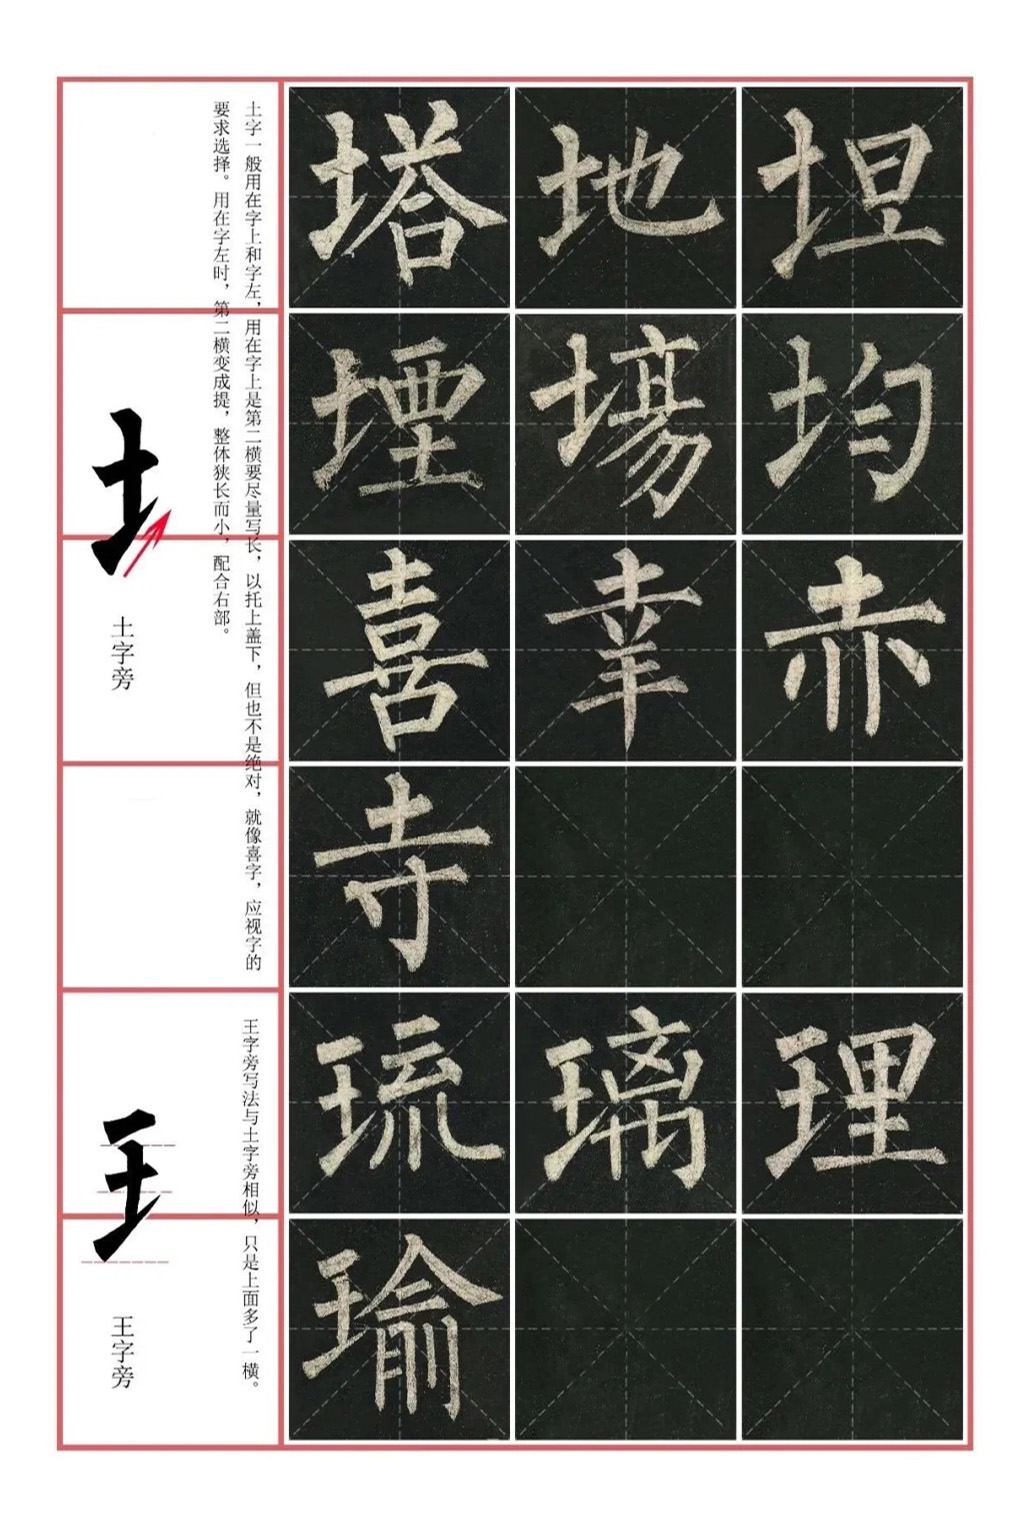 土字一般用在字上和字左，用在字上是第二横要尽量写长，以托上盖下，但也不是绝对，就像喜字，应视字的
要求选择。用在字左时，第二横变成提，整体狭长而小，配合右部。
土字旁
塔地坦
堙塲均
喜幸赤
寺
王字旁写法与土字旁相似，只是上面多了一横。
王字旁
琉璃理
瑜